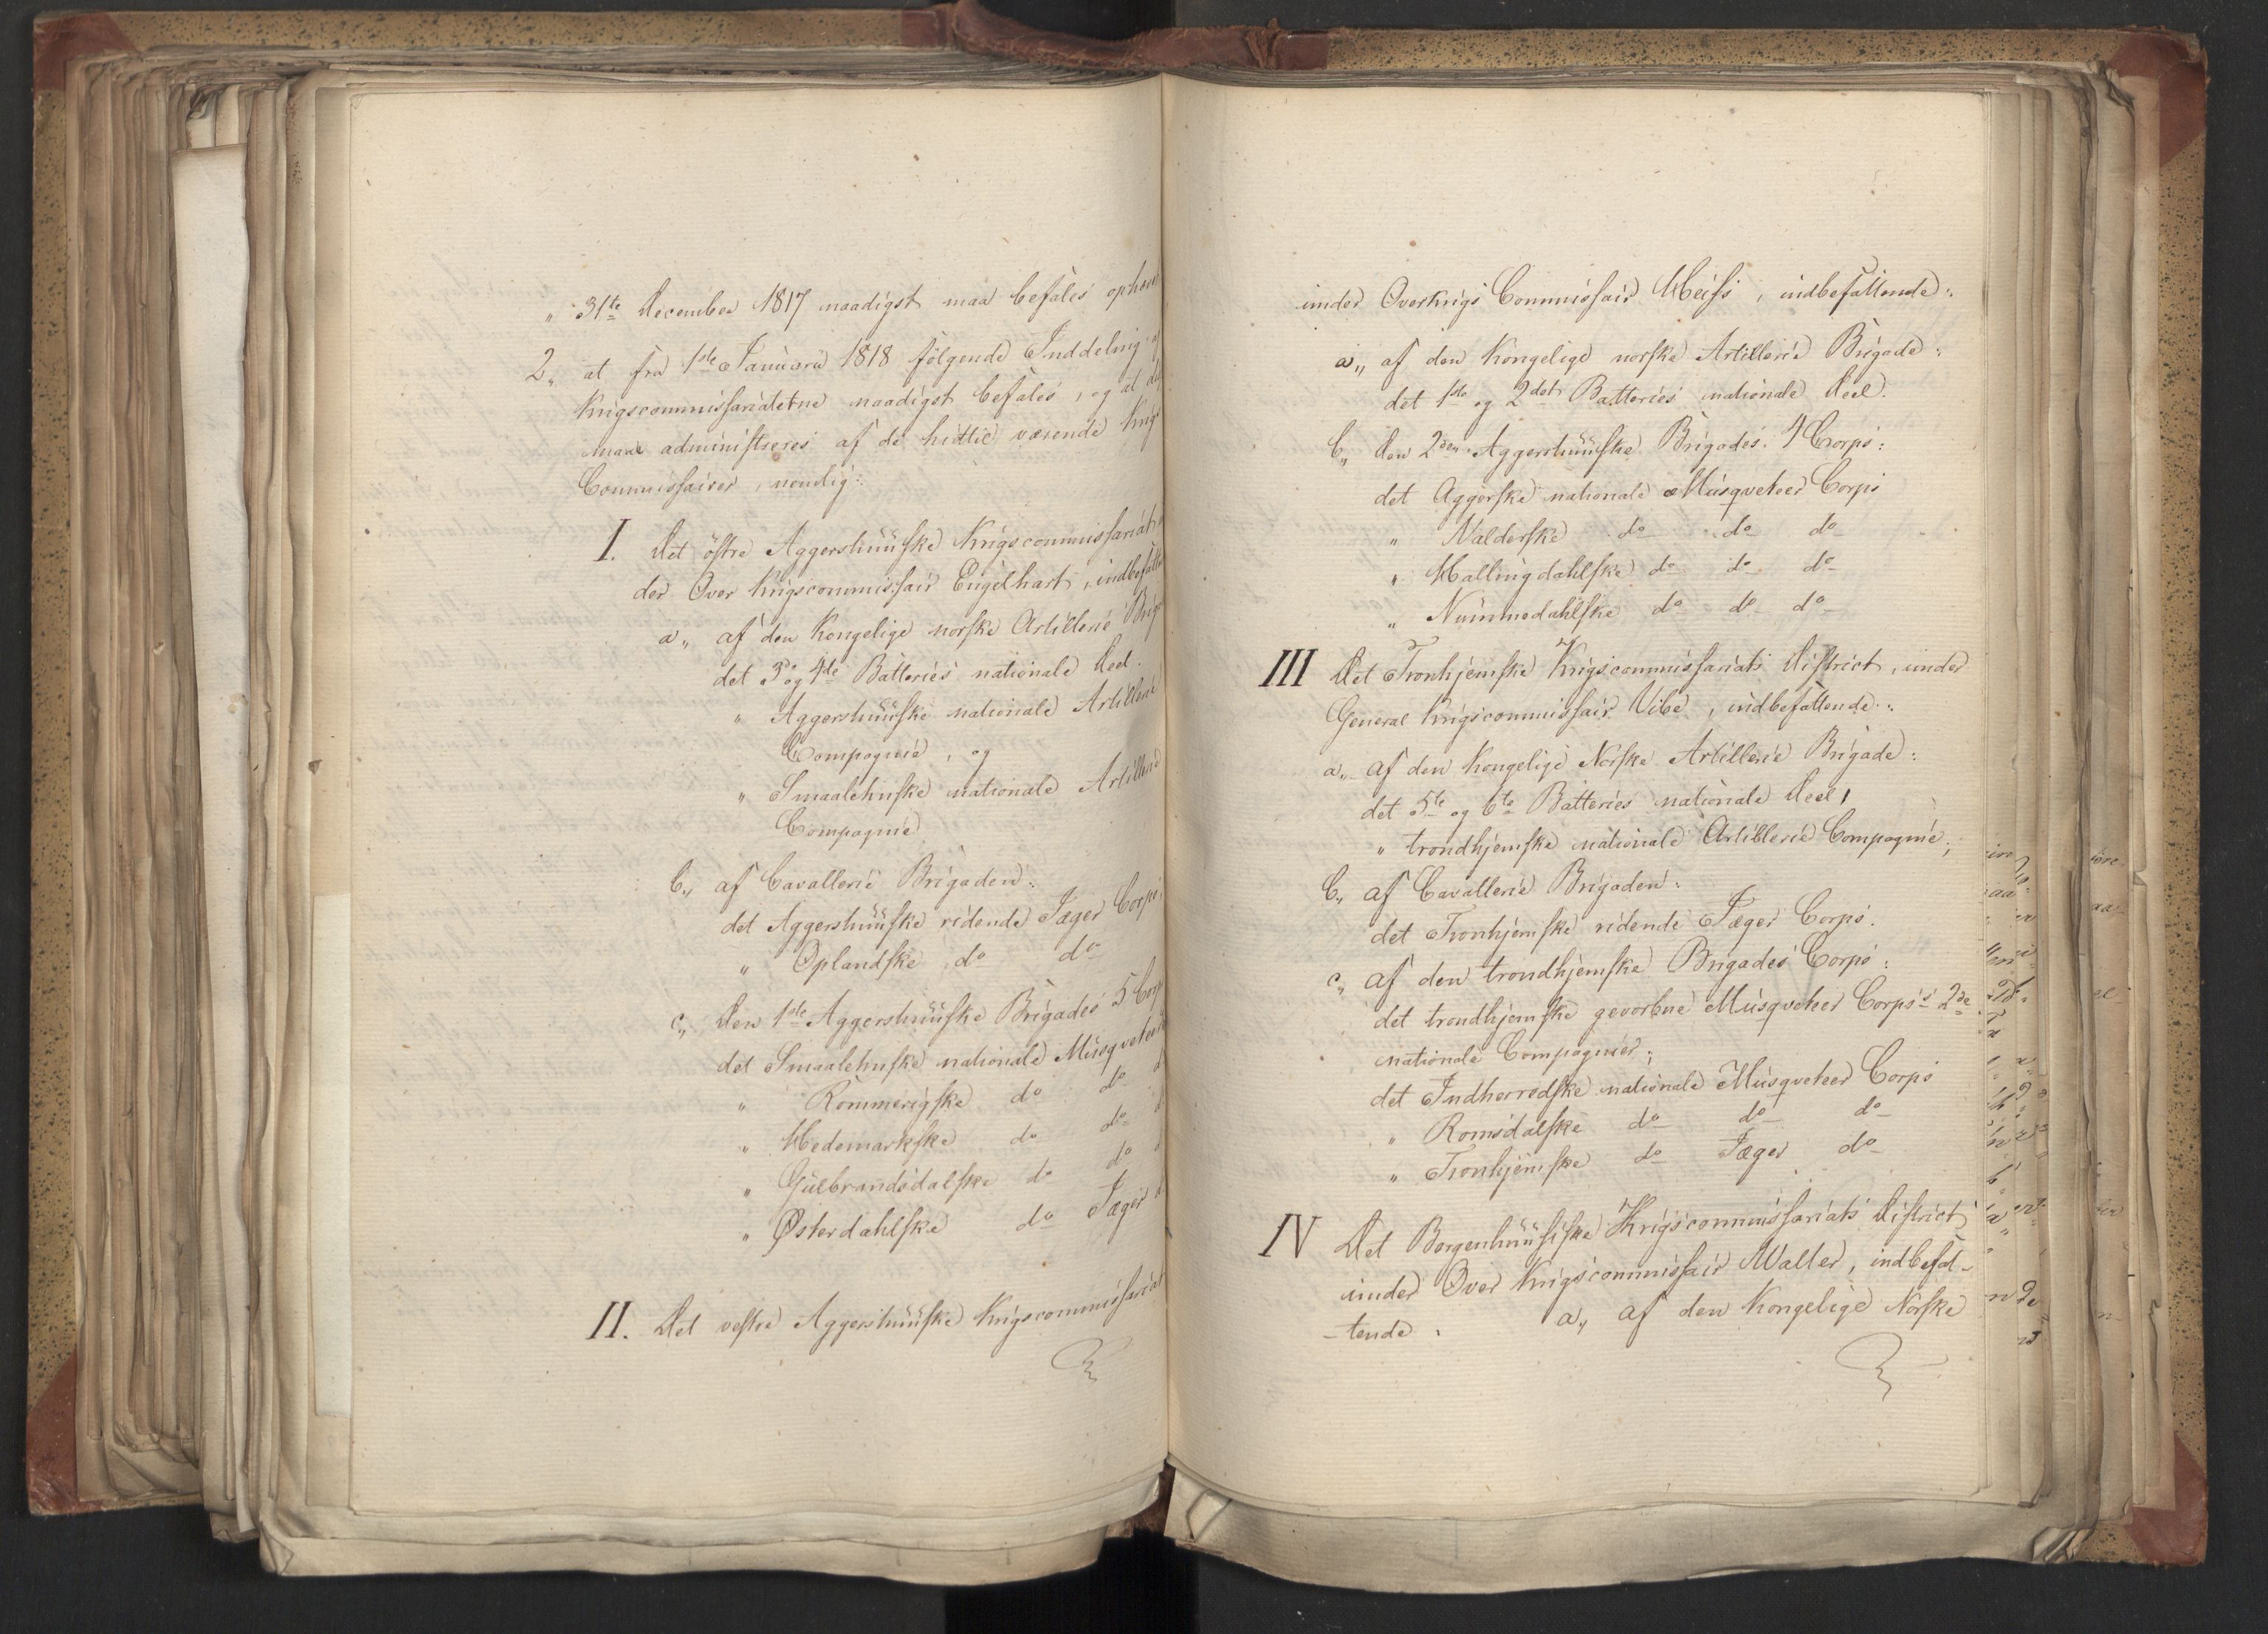 „ 31te December 1817 naadigst maa befales ophæv
2, at fra 1ste Januarii 1818 følgende Inddeling af
Krigscommissariaterne naadigst befales, og at de
maae administreres af de hidtil værende Krigs
Commissairer, nemlig:
I. Det östre Aggershuusske Krigscommissariat
der Over Krigscommissair Engelhart, indbefatte
a„ af den Kongelige norske Artillerie Brig
det 3die og 4de Batteries nationale Deel.
„ Aggershuusske nationale Artillerie
Compagnie, og
„ Smaalehnske nationale Artillerie
Compagnie
b„ af Cavallerie Brigaden:
det Aggershuusske ridende Jæger Corps,
„ Oplandske do do
c„ Den 1ste Aggershuusske Brigades 5 Corps
det Smaalehnske nationale Musqveteer
„ Rommerigske do do d
„ Hedemarkske do do d
„ Gulbrandsdalske do do d
„ Østerdahlske do Jæger d
II. Det vestre Aggershuusske Krigscommissariat
under Overkrigs Commissair Heiss, indbefattende:
a„ af den Kongelige norske Artillerie Brigade:
det 1ste og 2det Batteries nationale Deel.
b„ Den 2den Aggershuusske Brigades 4 Corps:
det Aggerske nationale Musqveteer Corps
„ Valderske do do do
„ Hallingdahlske do do do
„ Nummedahlske do do do
III Det Tronhjemske Krigscommissariats District, under
General Krigscommissair Vibe, indbefattende:
a„ af den Kongelige Norske Artillerie Brigade:
det 5te og 6te Batteries nationale Deel,
„ trondhjemske nationale Artillerie Compagnie,
b„ af Cavallerie Brigaden:
det Tronhjemske ridende Jæger Corps.
c„ af den trondhjemske Brigades Corps:
det trondhjemske gevorbne Musqveteer Corps's 2de
nationale Compagnier;
det Indherredske nationale Musqveteer Corps
„ Romsdalske do do do
„ Tronhjemske do Jæger do
IV Det Bergenhuusiske Krigscommissariats District
under Over Krigscommissair Walter, indbefat-
-tende: a„ af den Kongelige Norske